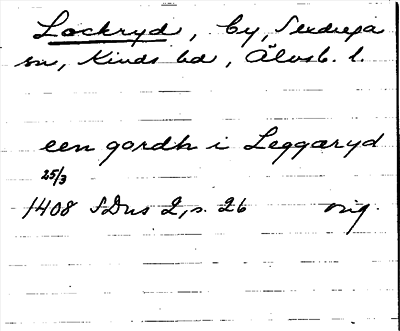 Lockryd, by, Sexdrega
sn, Kinds hd, Älvsb. l.
een gordh i Leggaryd
25/3
1408 SDns 2, s. 26 orig.